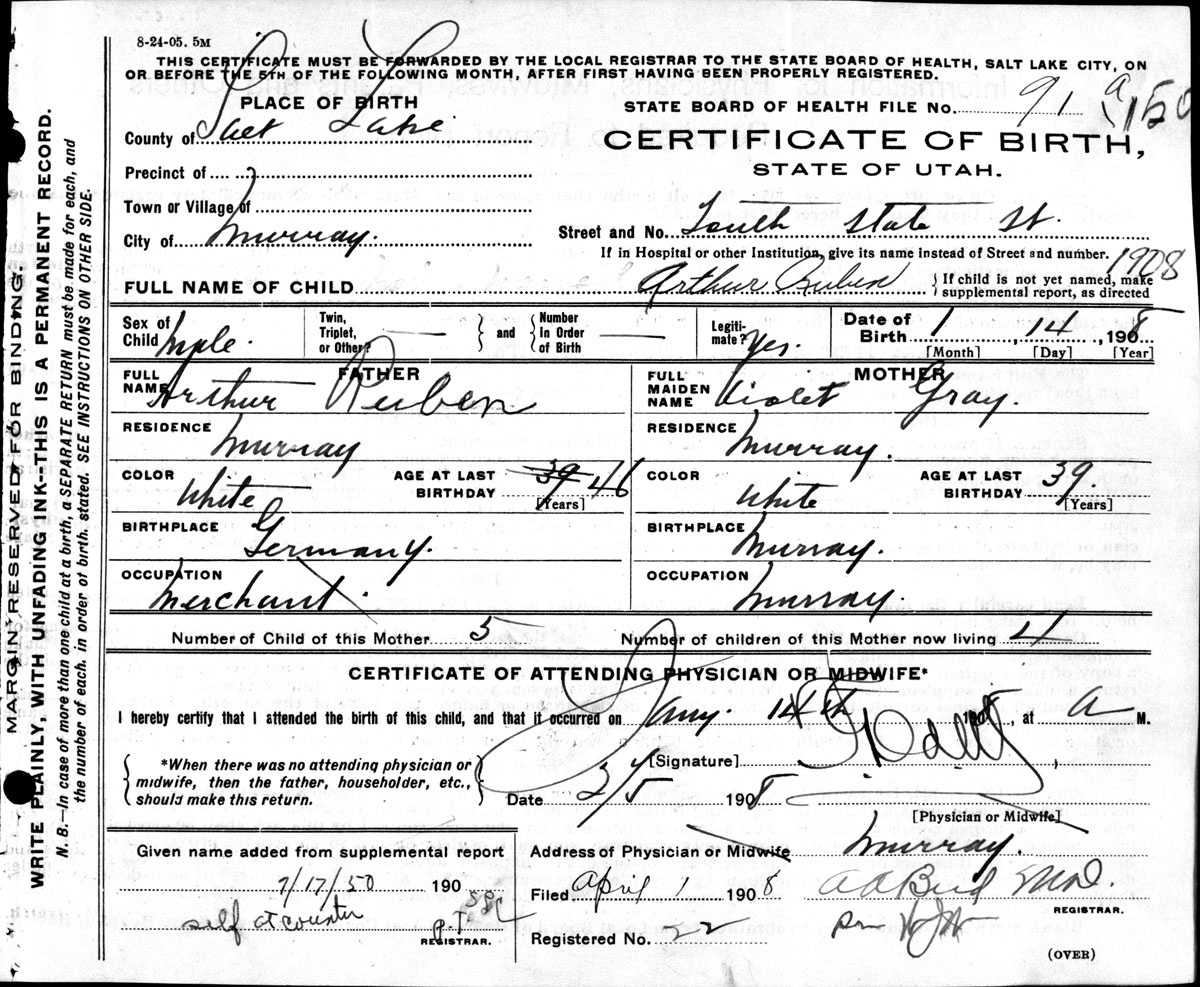 8-24-05. 5M
THIS CERTIFICATE MUST BE FORWARDED BY THE LOCAL REGISTRAR TO THE STATE BOARD OF HEALTH, SALT LAKE CITY, ON
OR BEFORE THE 5TH OF THE FOLLOWING MONTH, AFTER FIRST HAVING BEEN PROPERLY REGISTERED.
PLACE OF BIRTH
STATE BOARD OF HEALTH FILE No. 91 a 150
County of Salt Lake
CERTIFICATE OF BIRTH,
STATE OF UTAH.
Precinct of
Town or Village of
City of Murray.
Street and No. South State St
If in Hospital or other Institution, give its name instead of Street and number.
1908
FULL NAME OF CHILD Arthur Ruben { If child is not yet named, make
supplemental report, as directed
Sex of Child Male.
Twin, Triplet, or Other?
and
Number In Order of Birth
Legiti-mate? Yes.
Date of Birth 1, 14, 1908
[Month] [Day] [Year]
FATHER
FULL NAME Arthur Reuben
MOTHER
FULL MAIDEN NAME Violet Gray.
RESIDENCE Murray
RESIDENCE Murray.
COLOR White AGE AT LAST BIRTHDAY 39 46 [Years]
COLOR White AGE AT LAST BIRTHDAY 39 [Years]
BIRTHPLACE Germany.
BIRTHPLACE Murray.
OCCUPATION Merchant.
OCCUPATION Murray.
Number of Child of this Mother 5
Number of children of this Mother now living 4
CERTIFICATE OF ATTENDING PHYSICIAN OR MIDWIFE*
I hereby certify that I attended the birth of this child, and that it occurred on Jany 14th 1908, at A M.
*When there was no attending physician or
midwife, then the father, householder, etc.,
should make this return.
[Signature]
Date 2/5 1908
[Physician or Midwife]
Given name added from supplemental report
7/17/50 190
self at counter
REGISTRAR.
Address of Physician or Midwife Murray.
Filed April 1 1908
REGISTRAR.
Registered No. 22
(OVER)
MARGIN RESERVED FOR BINDING.
WRITE PLAINLY, WITH UNFADING INK--THIS IS A PERMANENT RECORD.
N. B.—In case of more than one child at a birth, a SEPARATE RETURN must be made for each, and
the number of each, in order of birth, stated. SEE INSTRUCTIONS ON OTHER SIDE.